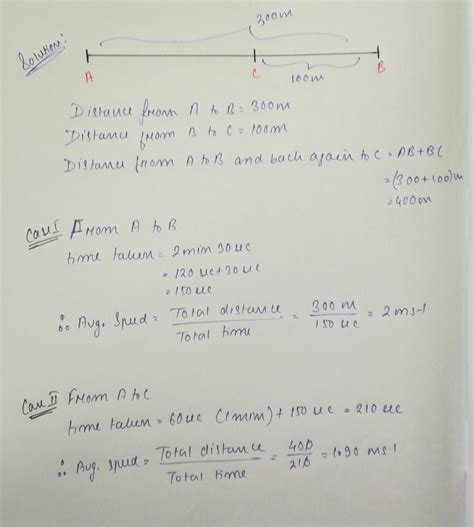 Solution:
300m
A C B
100m
Distance from A to B = 300m
Distance from B to C = 100m
Distance from A to B and back again to C = AB + BC
= (300+100)m
= 400m
Case I From A to B
time taken = 2min 30sec
= 120 sec + 30 sec
= 150 sec
∴ Avg. Speed = Total distance / Total time = 300 m / 150 sec = 2 ms-1
Case II From A to C
time taken = 60 sec (1min) + 150 sec = 210 sec
∴ Avg. Speed = Total distance / Total time = 400 / 210 = 1.90 ms-1